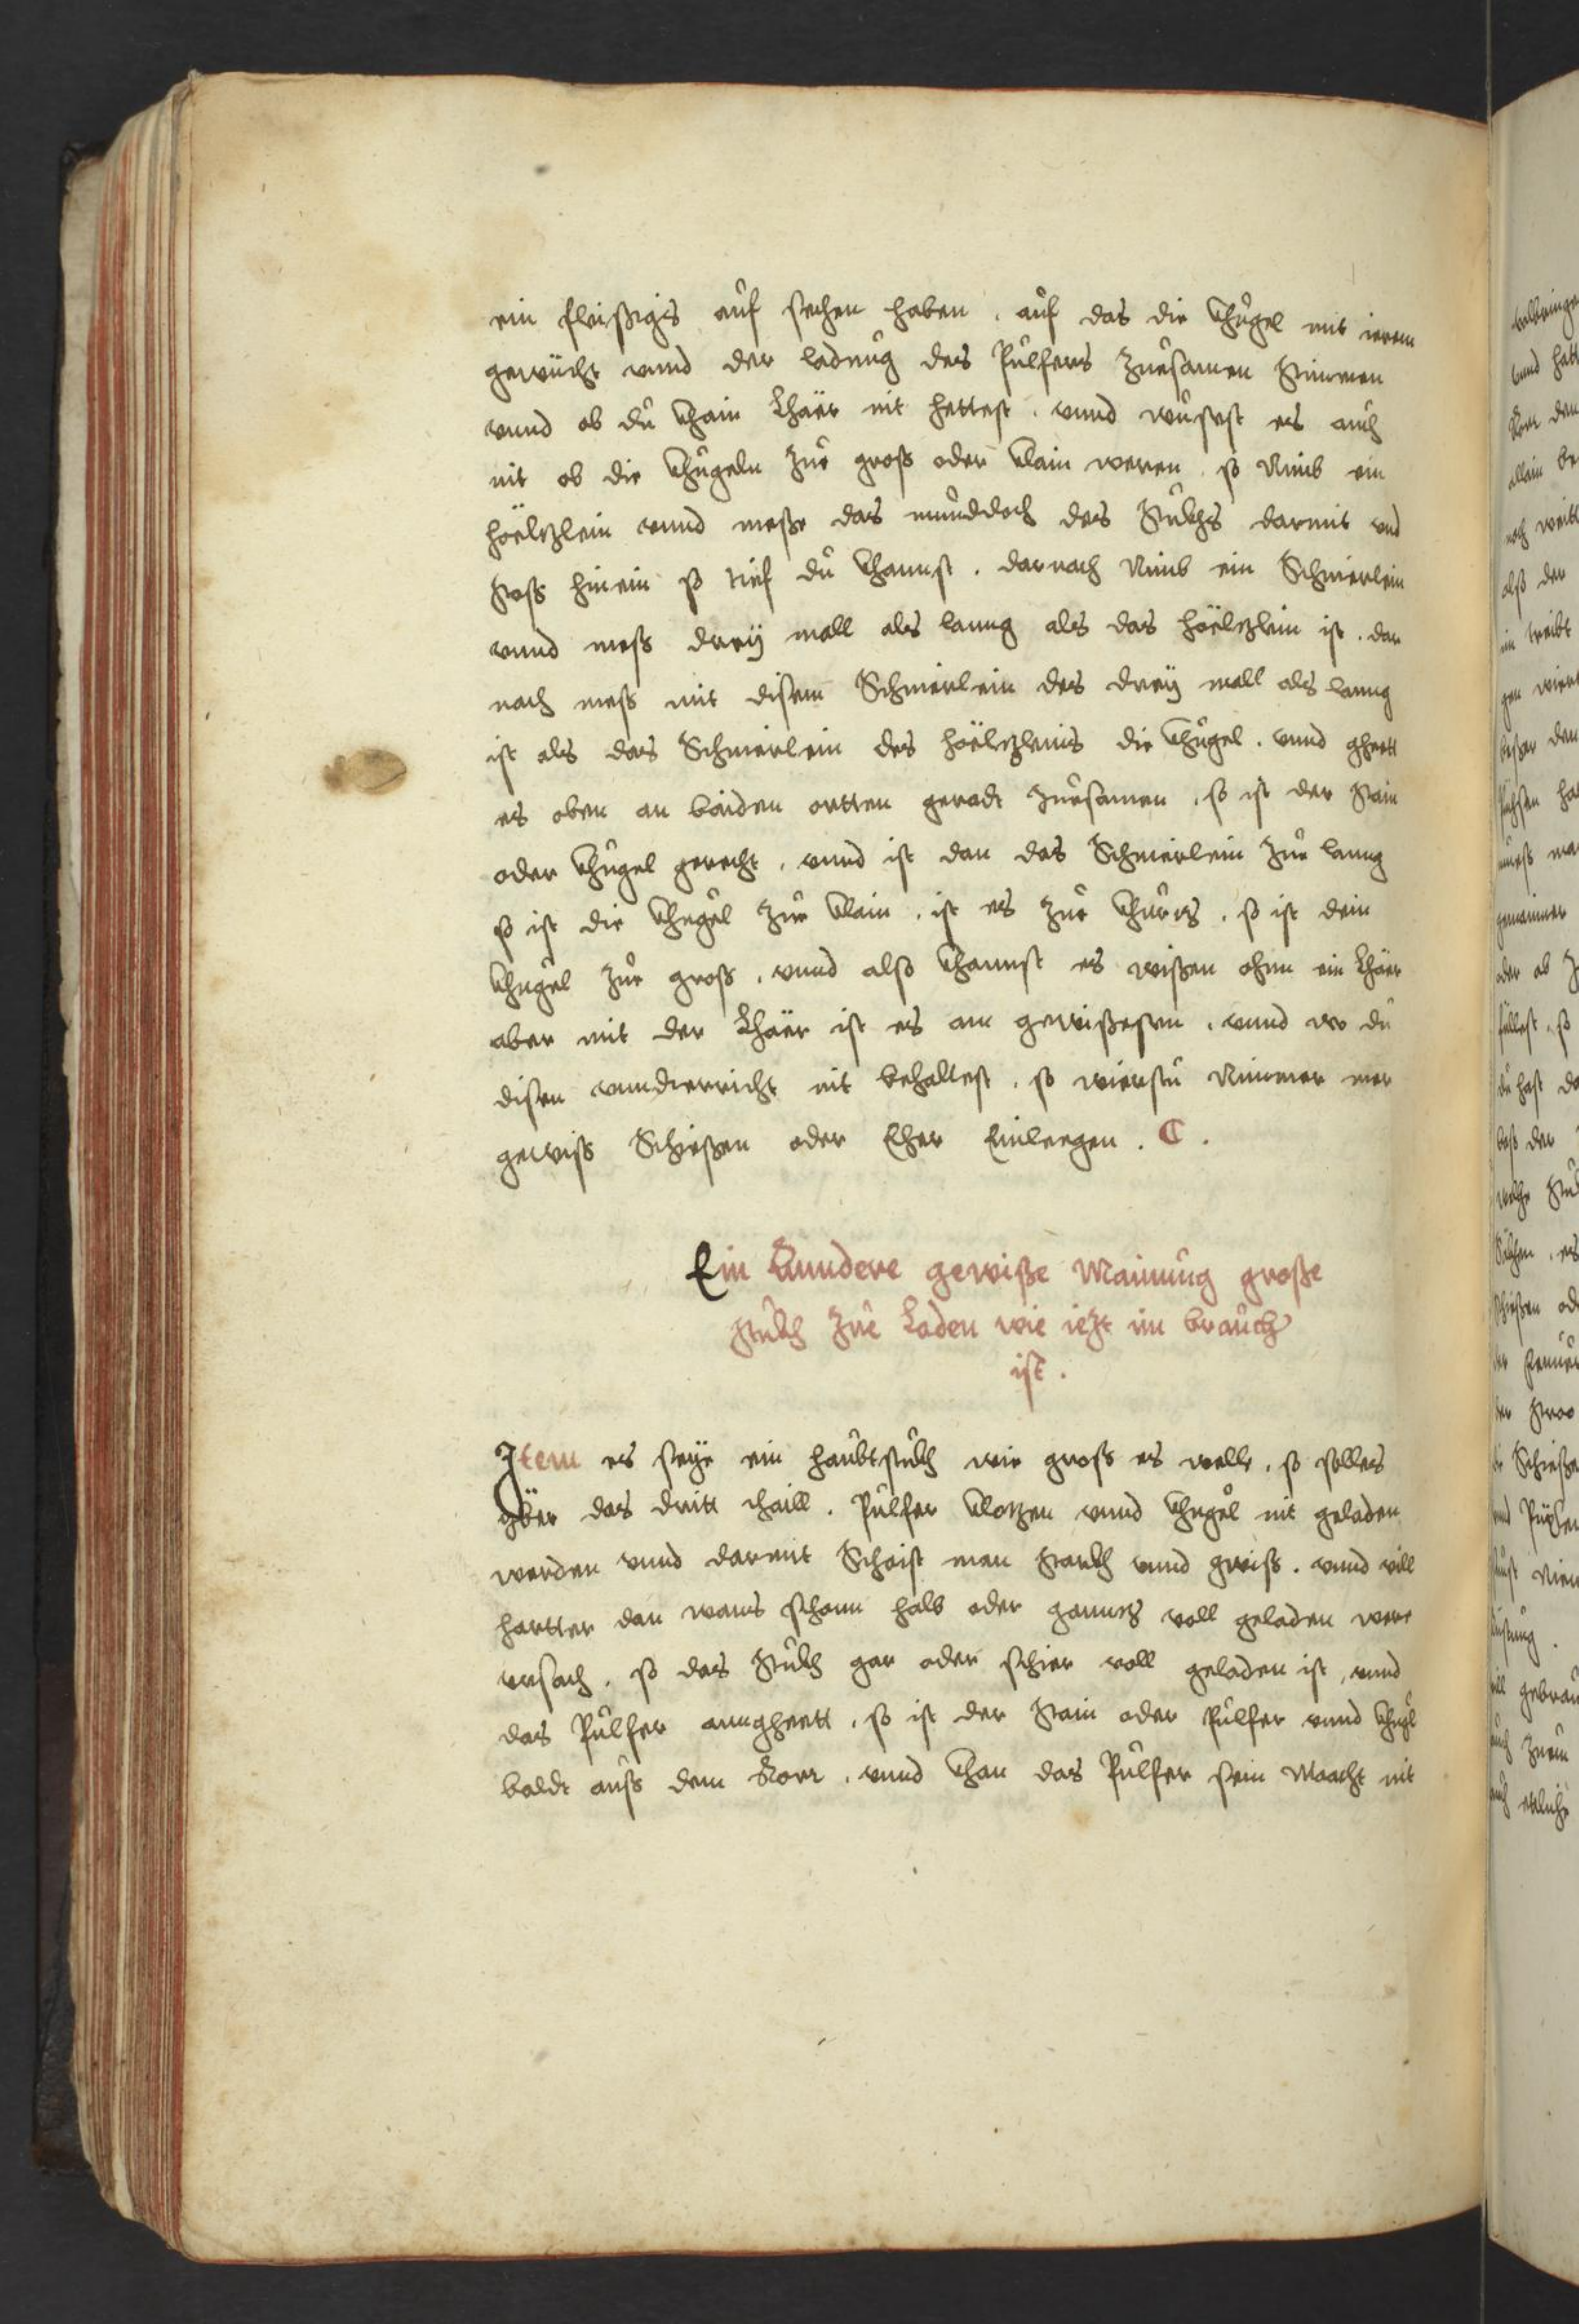 ein fleißigs auf sechen haben . auf das die Khugel mit ierem
gewücht vnnd der ladung des Pulfers zuesamen stimmen
vnnd ob du khain Lhäer nit hettest . vnnd wußest es auch
nit ob die khugeln zue groß oder klain weren . so Nimb ein
höelzlein vnnd meße das mundloch des stukhs darmit vnd
stoß hinein so tief du khannst . darnach Nimb ein Schnierlein
vnnd meß dreÿ mall als lanng als das höelzlein ist . dar
nach meß mit disem Schnierlein des dreÿ mall als lanng
ist als das Schnierlein des höelzleins die khugel . vnnd gheet
es oben an baiden ortten geradt zuesamen . so ist der stain
oder khugel gerecht . vnnd ist dan das Schnierlein zue lanng
so ist die khugel zue klain . ist es zue khurz . so ist dein
khugel zue groß . vnnd also khannst es wißen ohnn ein Lhäer
aber mit der Lhäer ist es am gewißesten . vnnd wo du
disen vnnderricht nit behaltest . so wierstu Nimmer mer
gewiß Schießen oder Eher Einleegen . C .
Ein Anndere gewiße Mainung große
stukh zue Laden wie iezt im brauch
ist .
Item es seÿe ein haubtstukh wie groß es welle . so solles
yber das dritt thaill . Pulfer klozen vnnd khugel nit geladen
werden vnnd darmit Scheist man starkh vnnd gwiß . vnnd vill
hartter dan wans schonn halb oder gannz voll geladen were
vrsach . so das stukh gar oder schier voll geladen ist , vnnd
das Pulfer anngheett . so ist der stain oder Pulfer vnnd khugl
baldt auß dem Rorr . vnnd khan das Pulfer sein Macht nit
vnnd
allain
noch
alß der
besser den
oder ob
du hast
Schießen
gebrau
etliche